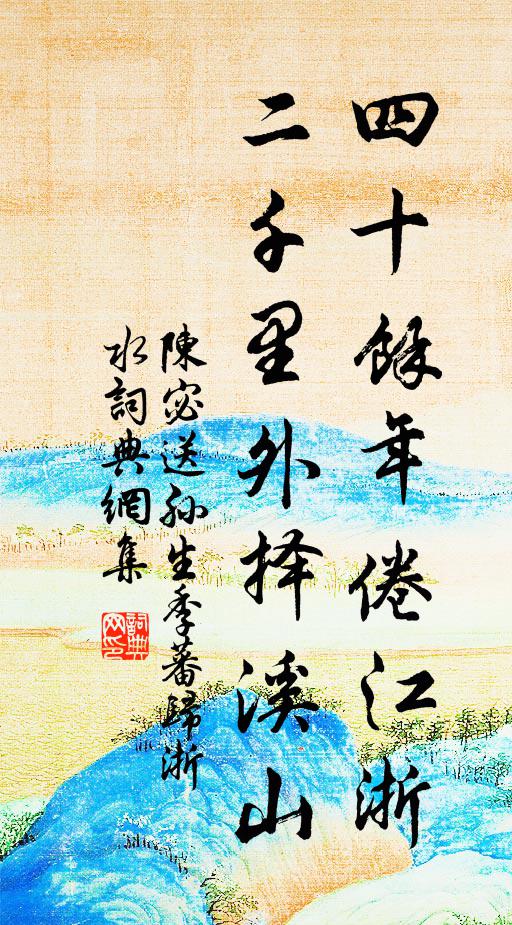 四十餘年倦江浙
二千里外择溪山
陳宓送孙生季蕃歸浙
水詞典網集
詞典网印